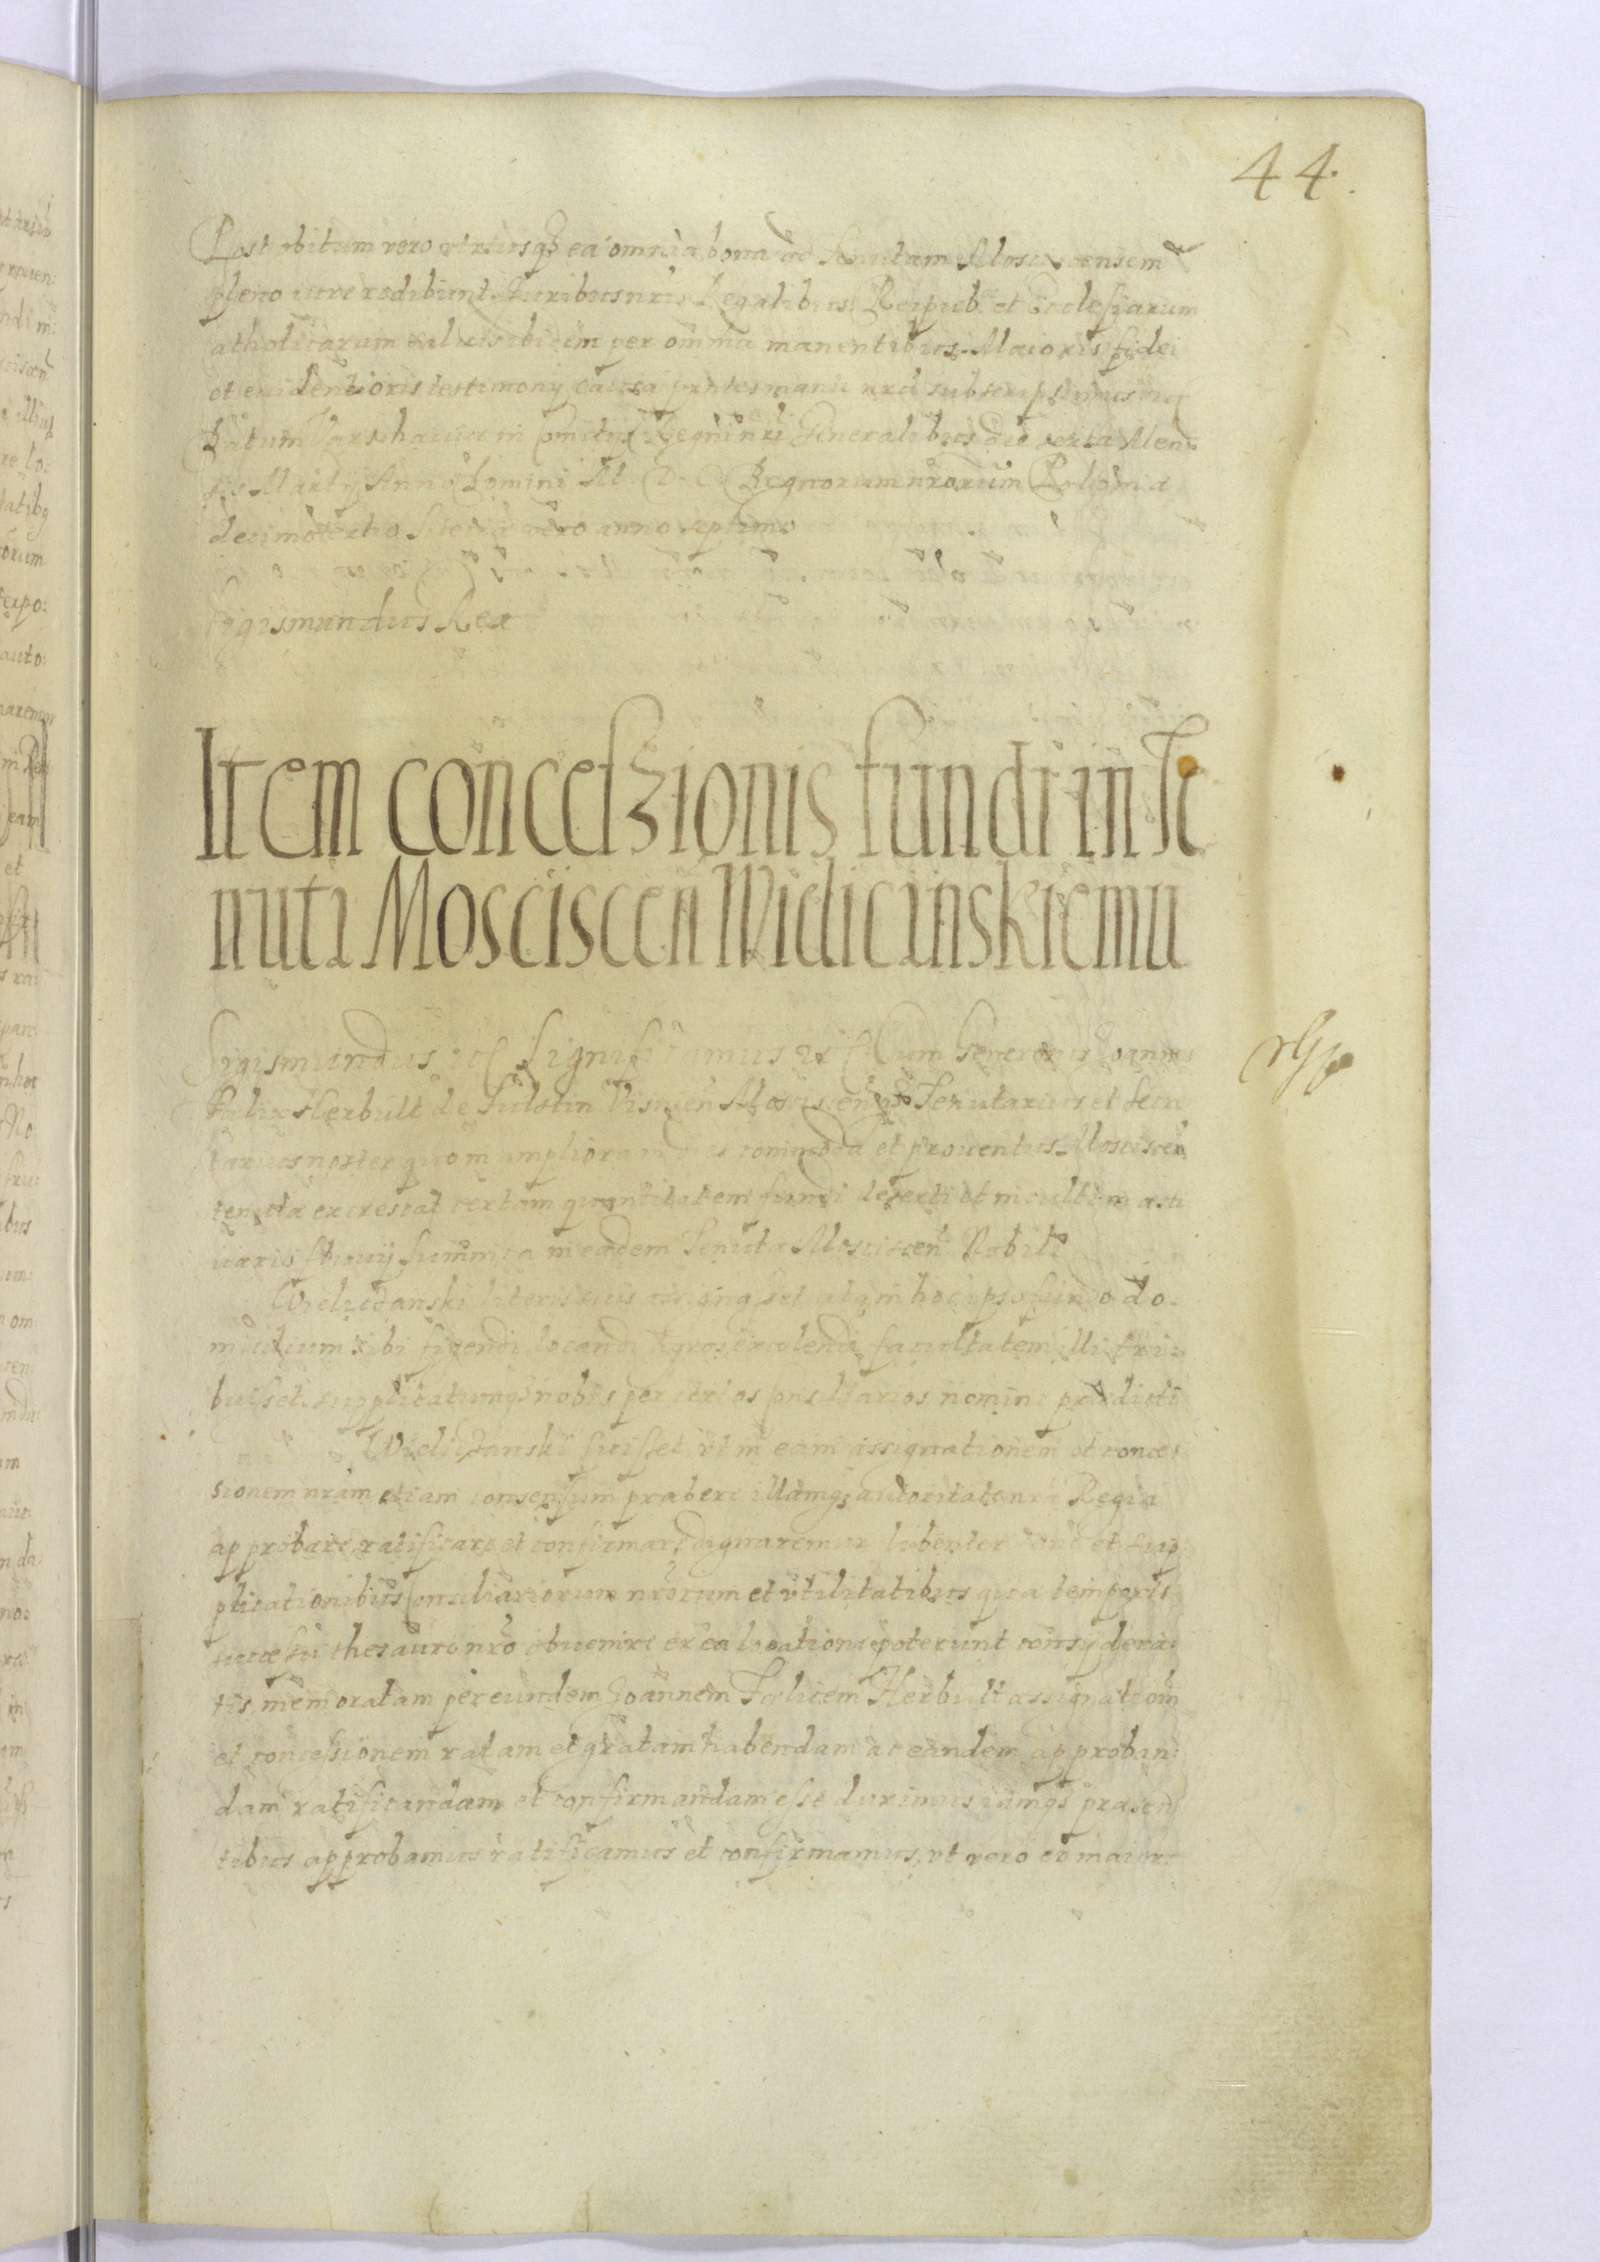 44.
Post obitum vero utriusq₃ ea omnia bona ad Tenutam Moscis censem
pleno iure redibunt. Iuribus nris Regalibus Reipub. et Ecclesiarum
atholicarum saluis ibidem per omnia manentibus. Maioris fidei
et euidentioris testimony causa prntes manu nra subscripsimus
Datum Varschauiæ in Comitys Regni nri Generalibus die sexta Men
sis Marty Anno Domini M. D. C Regnorum nrorum Poloniæ
decimotertio Sueciæ vero anno septimo
Sigismundus Rex
Item conceszionis fundi in Te
nuta Mosciscen Widlicinskiemu
Sigismundus etc Significamus etc Cum Generosus Joannes
Fælix Herbult de Fulstin Visnen Mosciscen Tenutarius et Secre
tarius noster quo in ampliora commoda et prouentus Mosciscen
tenuta excrescat certam quantitatem fundi deserti et inculti
uario fluuy in eadem Tenuta Mosciscen Nobili
Wieliczanski literis suis assignasset atqui in hoc ipso fundo do
micilium sibi figendi locandi Agros excolendi facultatem illi tri
buisset. supplicatumq₃ nobis per certos Consiliarios nomine prædicti
Wieliczanski fuisset vt in eam assignationem et conces
sionem nram etiam consensum præbere illamq₃ autoritate nra Regia
approbare ratificare et confirmare dignaremur libenter et sup
plicationibus Consiliariorum nrorum et vtilitatibus quæ temporis
successu thesauro nro obuenire ex ea locatione poterunt consydera
tis, memoratam per eundem Joannem Fælicem Herbult assignationem
et concessionem ratam et gratam habendam ac eandem approban
dam ratificandam et confirmandam esse duximus iamq₃ præsen
tibus approbamus ratificamus et confirmamus, vt vero eo maiore